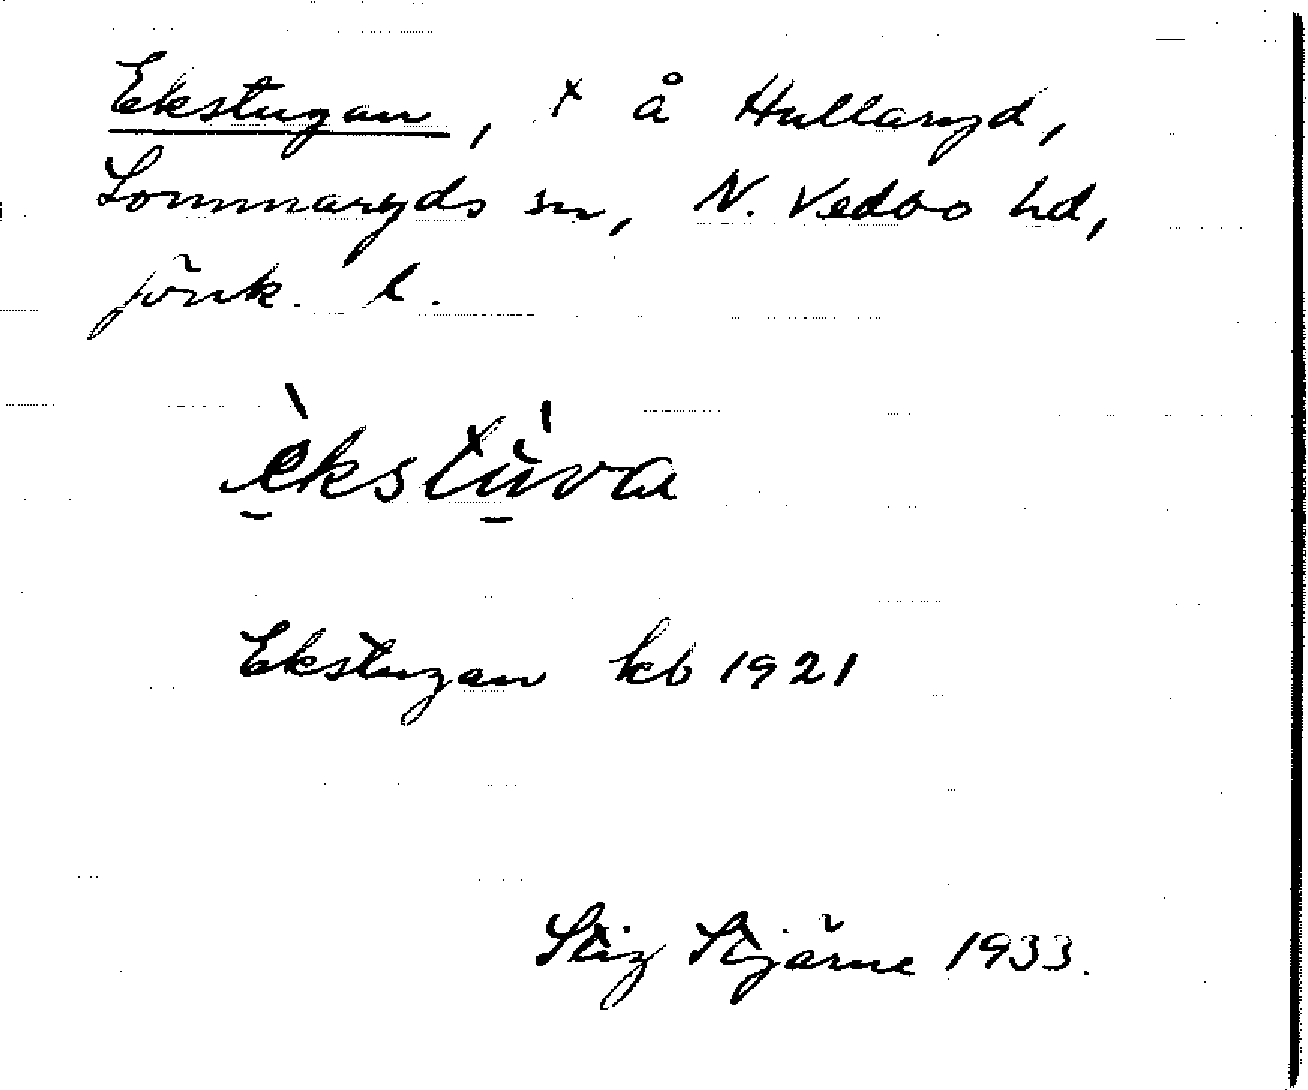 Ekstugan, x å Hullaryd,
Lommaryds sn, N. Vedbo hd,
Jönk. l.
èkstùva
Ekstugan kb 1921
Stig Stjärne 1933.